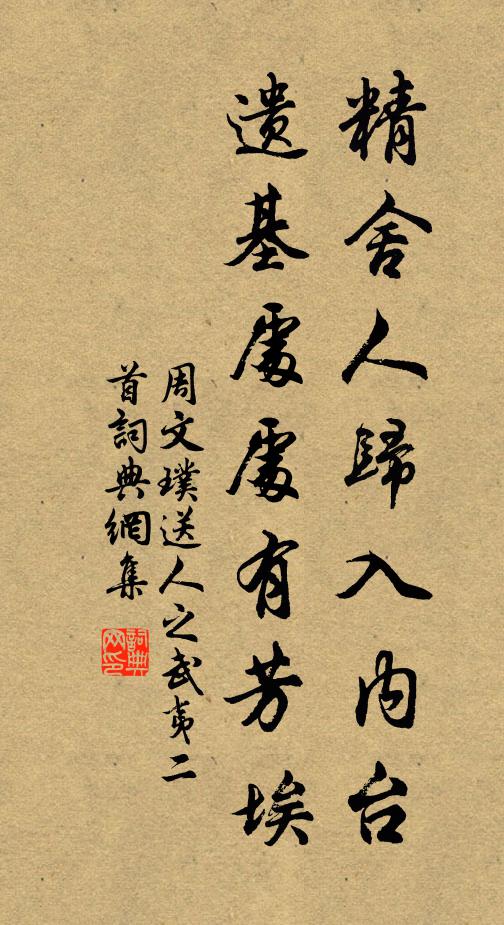 精舍人歸入內台
遺基處處有芳埃
周文璞送人之武夷二
首詞典網集
詞典
网印